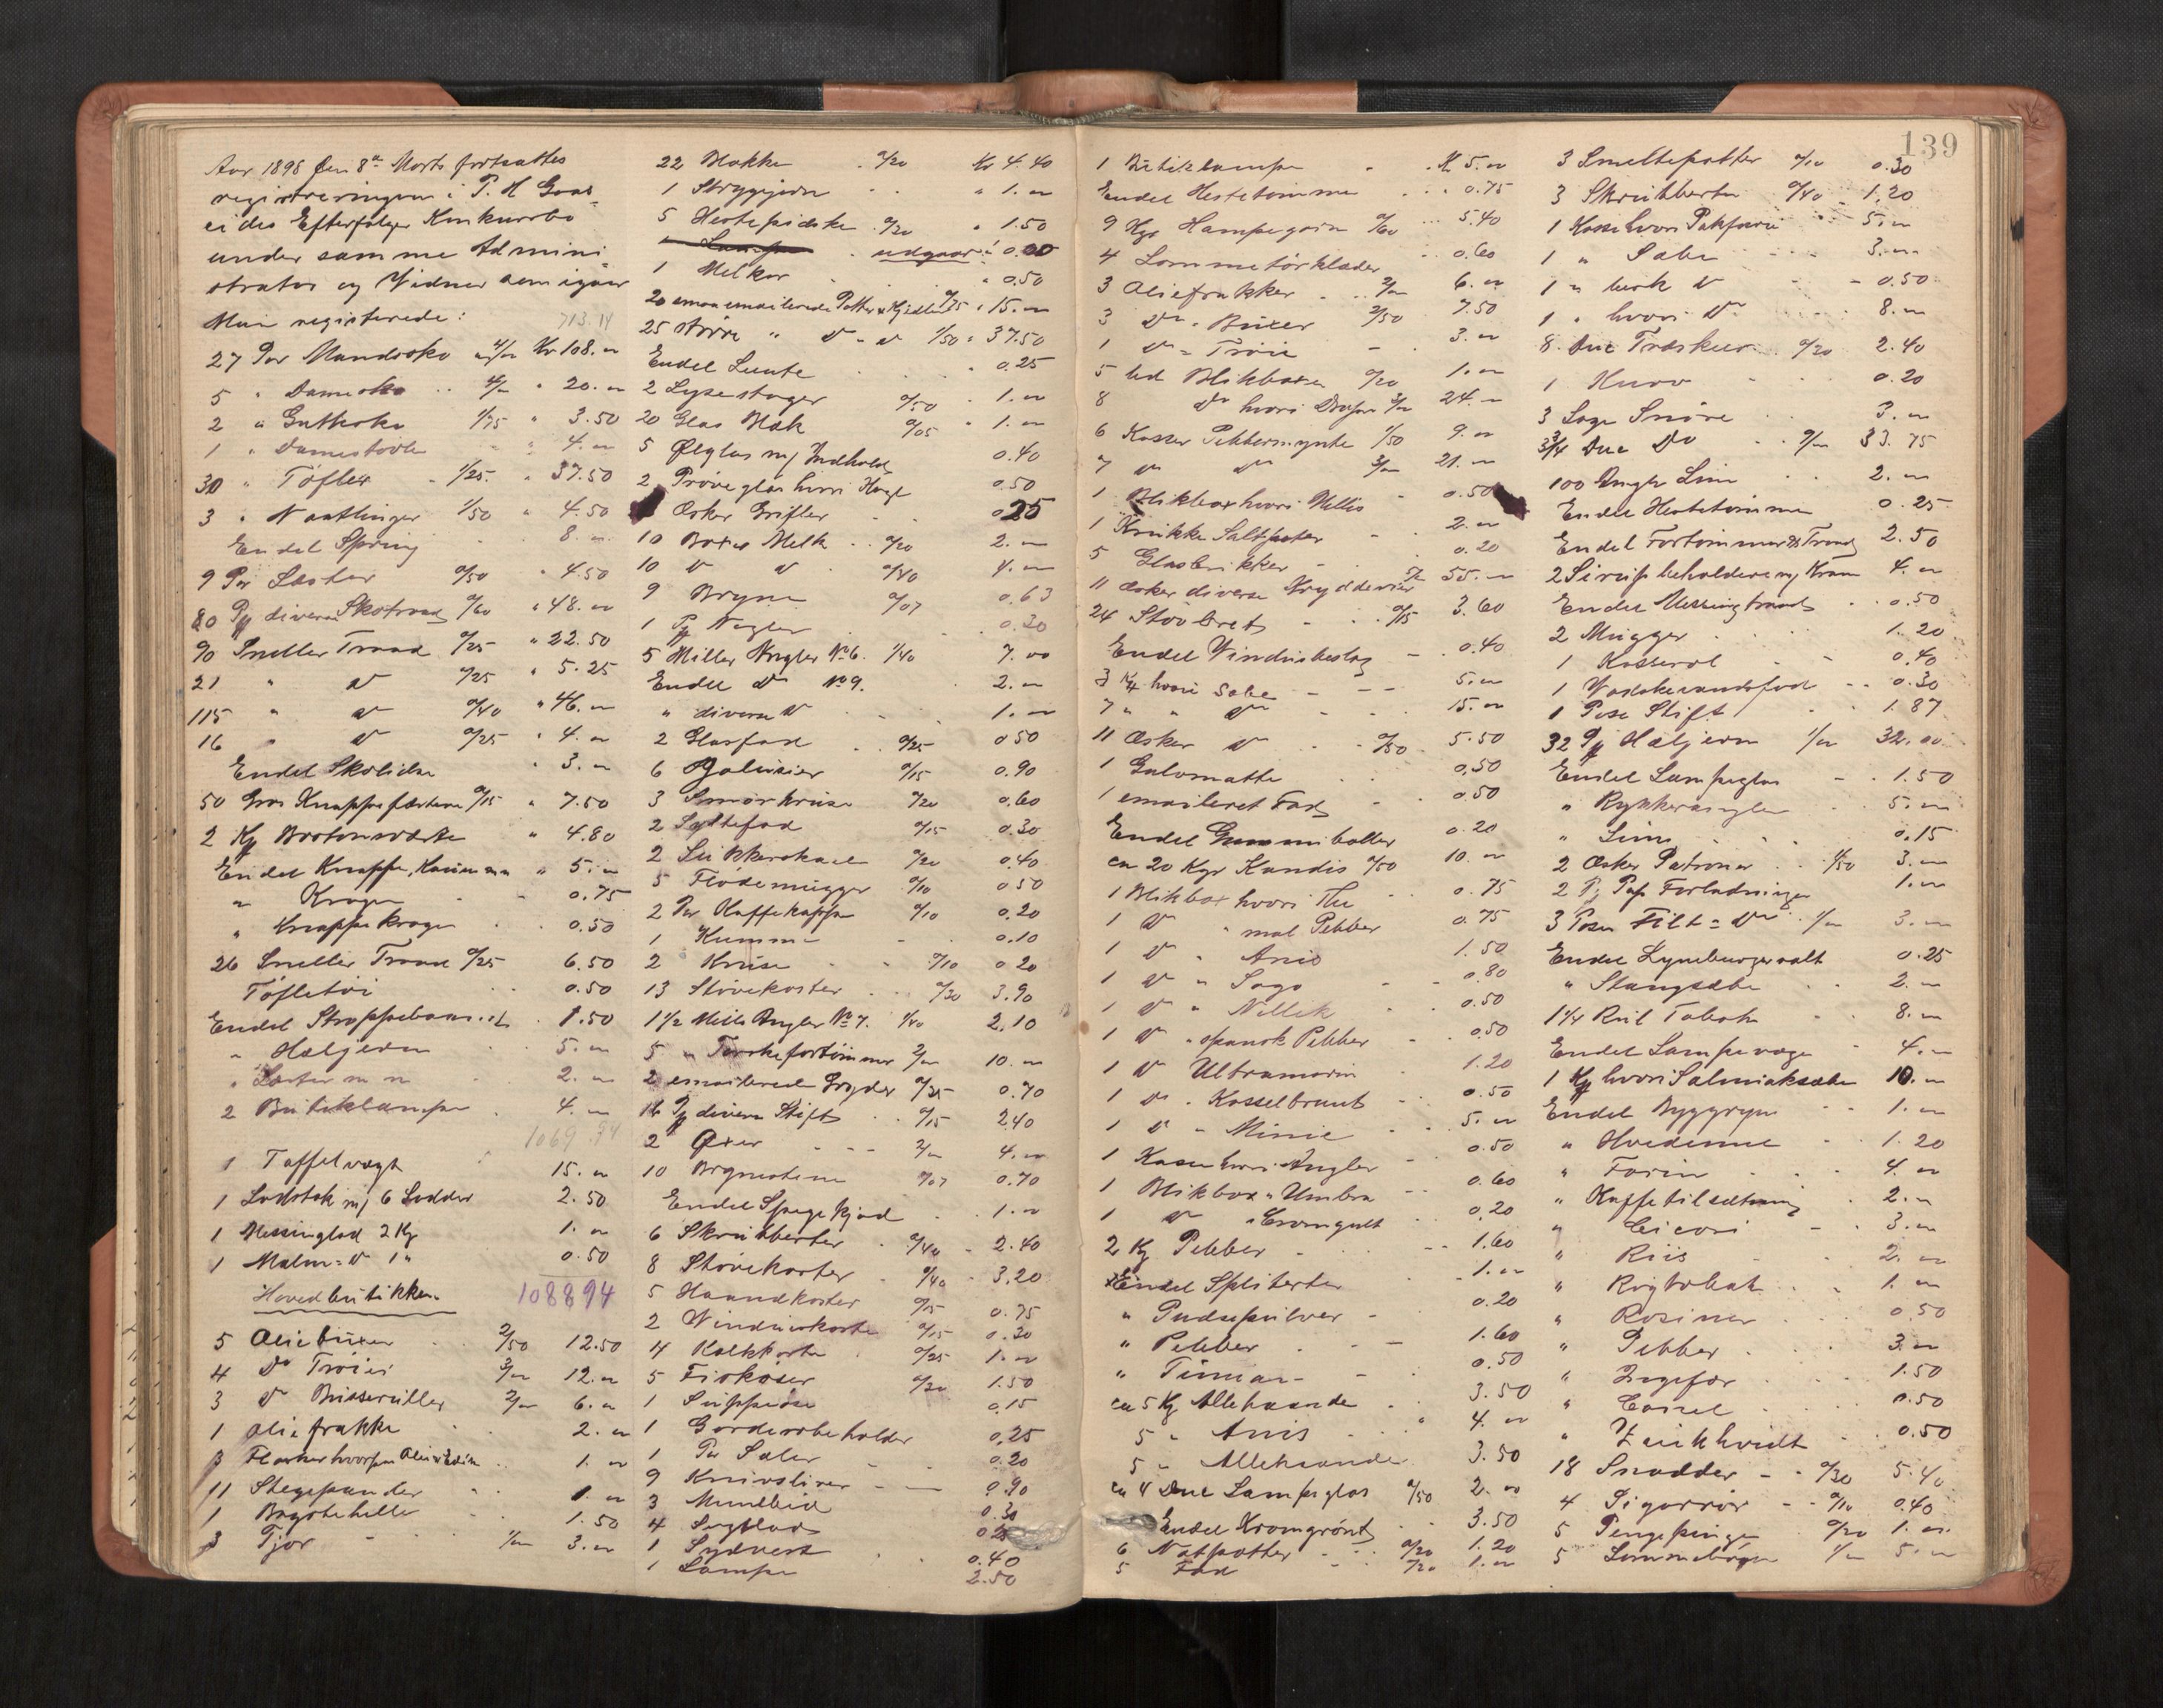 139
Aar 1898 den 8de Marts fortsattes
registreringen i P. H. Gaas-
eides Efterfølger Konkursbo
under samme Admini-
strator og Vidner som igaar
Man registerede: 713.14
27 Par Mandssko a 4/- Kr 108.-
5 " Damesko 4/- " 20.-
2 " Gutsko 1/75 " 3.50
1 " Damestøvle " 4.-
30 " Tøfler 1/25 " 37.50
3 " Naatlinger 1/50 " 4.50
Endel Spring 8.-
9 Par Læster 0/50 " 4.50
80 Pk diverse Skotraad 0/60 " 48.-
90 Sneller Traad 0/25 " 22.50
21 " Do 0/25 " 5.25
115 " Do 0/40 " 46.-
16 " Do 0/25 " 4.-
Endel Skolidse " 3.-
50 Gros Knappefæstere 0/15 " 7.50
2 Kg " 4.80
Endel Knapper, " 5.-
" Kroger 0.75
" Knappekroge 0.50
26 Sneller Traad 0/25 6.50
Tøfletøi 0.50
Endel 1.50
" Hæljern 5.-
" Læster m m 2.-
2 Butiklamper 4.-
1069.94
1 Taffelvægt 15.-
1 Lodstok m/ 6 Lodder 2.50
1 Messinglod 2 Kg 1.-
1 Malm- Do 1 " 0.50
Hovedbutikken 1088 94
5 Oliebuxer 2/50 12.50
4 Do Trøier 3/- 12.-
3 Do 2/- 6.-
1 Oliefrakke 2.-
3 Flasker hvorpaa 1.-
11 Stegepander 1.-
1 Bagstehelle 1.50
3 Tjor 1/- 3.-
22 Blakke 0/20 Kr 4.40
1 Strygejern " 1.-
5 Hestepidske 0/30 " 1.50
1 Lampe udgaar
1 Melkar " 0.50
20 smaa emailerede Potter & Kjedler 0/75 " 15.-
25 større " Do - Do 1/50 " 37.50
Endel Lunte " 0.25
2 Lysestager 0/50 " 1.-
20 Glas Blæk 0/05 " 1.-
5 Ølglas m/ Indhold 0.40
2 Prøveglas hvori 0.50
Æsker Grifler 0.25
10 Boxer Melk 0/20 2.-
10 Do Do 0/40 4.-
9 Bryne 0/07 0.63
1 Pk Nagler 0.30
5 Miller Angler No 6. 1/40 7.00
Endel Do No 9. 2.-
" diverse Do 1.-
2 Glasfad 0/25 0.50
6 0/15 0.90
3 Smørkruse 0/20 0.60
2 Syltefad 0/15 0.30
2 Sukkerskaal 0/20 0.40
5 Flødemugger 0/10 0.50
2 Par Kaffekopper 0/10 0.20
1 Kumme 0.10
2 Kruse 0/10 0.20
13 Støvekoster 0/30 3.90
1 1/2 Mille Angler No 7. 1/40 2.10
5 " Torskefortømmer 2/- 10.-
2 emailerede Gryder 0/35 0.70
16 Pk diverse Stift 0/15 2.40
2 Øxer 2/- 4.-
10 Brynestene 0/07 0.70
Endel Spegekjød 1.-
6 Skrubberter 0/40 2.40
8 Støvekoster 0/40 3.20
5 Haandkoster 0/15 0.75
2 Vinduskoste 0/15 0.30
4 Kalkkoste 0/25 1.-
5 Fiskøser 0/30 1.50
1 Suppeøse 0.15
1 Garderobeholder 0.25
1 Par Sæler 0.20
9 Knivslirer 0.90
3 Mundbid 0.30
4 Sagblad
1 Sydvest 0.40
1 Lampe 2.50
1 Butiklampe K 5.-
Endel Hestetømme 0.75
9 Kgr Hampegarn 0/60 5.40
4 Lommetørklæder 0.60
3 Oliefrakker 2/- 6.-
3 Do - Buxer 2/50 7.50
1 Do - Trøie 3.-
5 Blikboxe 0/20 1.-
8 Do hvori 3/- 24.-
6 Kasser Pebbermynte 1/50 9.-
7 Do Do 3/- 21.-
1 Blikbox hvori Nellik 0.50
1 Krukke Saltpeter 2.-
5 Glasbrikker 0.20
11 Æsker diverse Krydderier 5/- 55.-
24 Støvbret 0/15 3.60
Endel Vinduebeslag 0.40
3 Ks hvori Sæbe 5.-
7 " " Do 15.-
11 Æsker Do 0/50 5.50
1 Gulvmatte 0.50
1 emaileret Fad 0.50
Endel Gummiboller 0.20
ca 20 Kgr Kandis 0/50 10.-
1 Blikbox hvori The 0.75
1 Do " mal Pebber 0.75
1 Do " Anis 1.50
1 Do " Sago 0.80
1 Do " Nellik 0.50
1 Do " spansk Pebber 0.50
1 Do Ultramarin 1.20
1 Do " Kasselbrunt 0.50
1 Do " Minie 5.-
1 Kasse hvori Angler 0.50
1 Blikbox " Umbra 0.60
1 Do " Cromgult 0.20
2 Kg Pebber 1.60
Endel Spliterter 1.-
" Pudsepulver 0.20
" Pebber 1.60
" Timian 0.50
ca 5 Kg Allehaande 3.50
5 " Anis 4.-
5 " Allehaande 3.50
ca 4 Dus Lampeglas 0/50 2.00
Endel Kromgrønt 3.50
6 Natpotter 0/20 1.20
5 Fad 0/20 1.-
3 Smeltepotter 0/10 0.30
3 Skrubberter 0/40 1.20
1 Kasse hvori Pakfarve 5.-
1 " Sæbe 3.-
1 " Do 0.50
1 " hvori Do 8.-
8 Dus Træskeer 0/30 2.40
1 Kurv 0.20
3 Sage Snøre 3.-
3 3/4 Dus Do 9/- 33.75
100 Angler Line 2.-
Endel Hestetømme 0.25
Endel Fortømmer Traad 2.50
2 Sirupbeholdere m/ Kran 4.-
Endel Messingtraad 0.50
2 Mugger 1.20
1 Kasserol 0.40
1 Vaskevandsfad 0.30
1 Pose Stift 1.87
32 Pk Hæljern 1/- 32.00
Endel Lampeglas 1.50
" Rykkerangler 5.-
" Lim 0.15
2 Æsker Patroner 1/50 3.-
2 Pk Pap Forladninger 1.-
3 Poser Filt- Do 1/- 3.-
Endel Lyneburgersalt 0.25
" Stangsæbe 2.-
1 1/4 Rul Tobak 8.-
Endel Lampevæge 4.-
1 Kg hvori Salmiaksæbe 10.-
Endel Byggryn 1.-
" Hvedemel 1.20
" Farin 4.-
" Kaffetilsætning 2.-
" Cicori 3.-
" Riis 2.-
" Røgtobak 1.-
" Rosiner 0.50
" Pebber 3.-
" Ingefær 1.50
" Canel 0.50
" Zinkhvidt 0.50
18 Snadder 0/30 5.40
4 Sigarrør 0/10 0.40
5 Pengepunge 0/20 1.-
5 Lommebøger 1/- 5.-